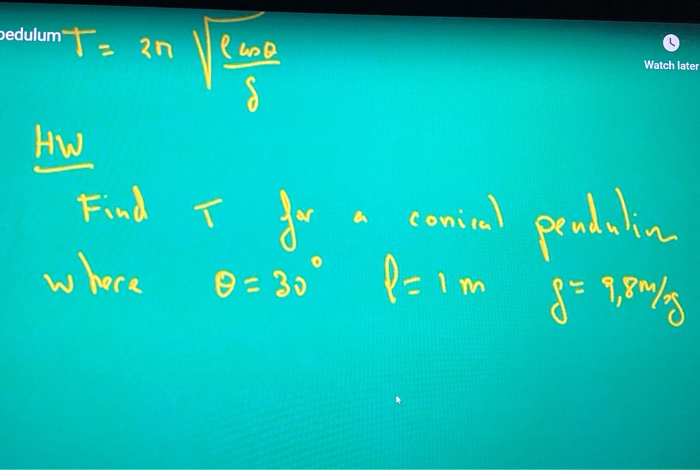 pedulum T = 2π √(l cosθ / g)
Watch later
HW
Find T for a conical pendulim
where θ = 30° l = 1 m g = 9,8 m/